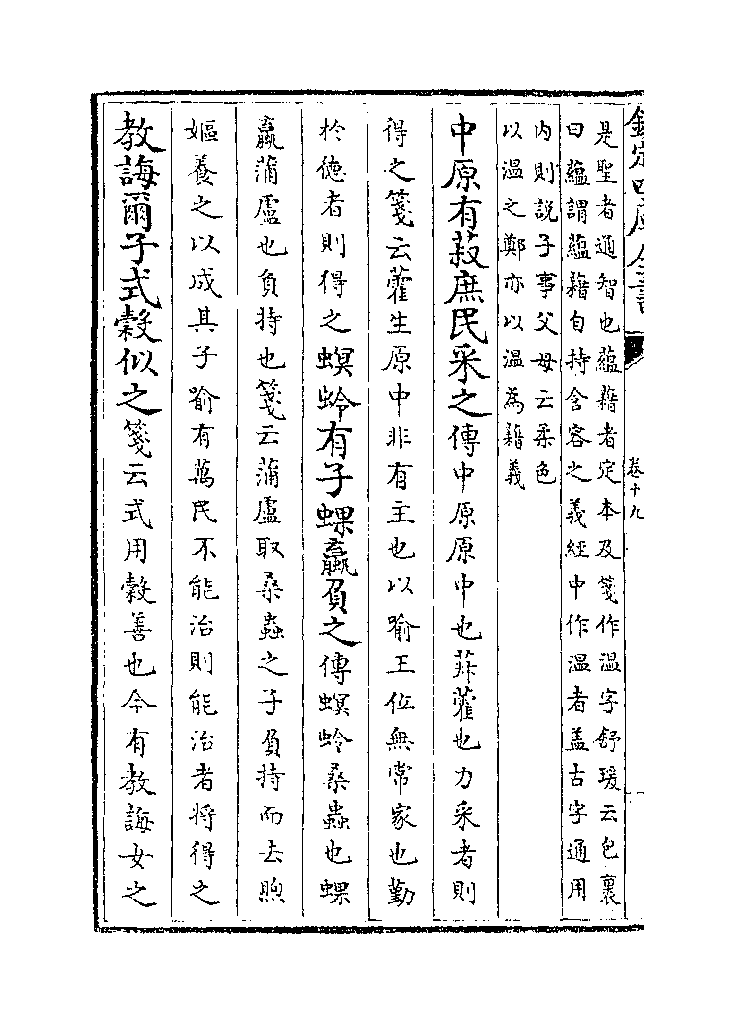 欽定四庫全書
卷十九
是聖者通智也藴藉者定本及箋作温字舒瑗云包裹
曰藴謂藴藉自持含容之義經中作温者盖古字通用
内則説子事父母云柔色
以温之鄭亦以温為藉義
中原有菽庶民采之傳中原原中也菽藿也力采者則
得之箋云藿生原中非有主也以喻王位無常家也勤
於徳者則得之螟蛉有子蜾蠃負之傳螟蛉桑蟲也蜾
蠃蒲盧也負持也箋云蒲盧取桑蟲之子負持而去煦
嫗養之以成其子喻有萬民不能治則能治者將得之
教誨爾子式榖似之箋云式用榖善也今有教誨女之